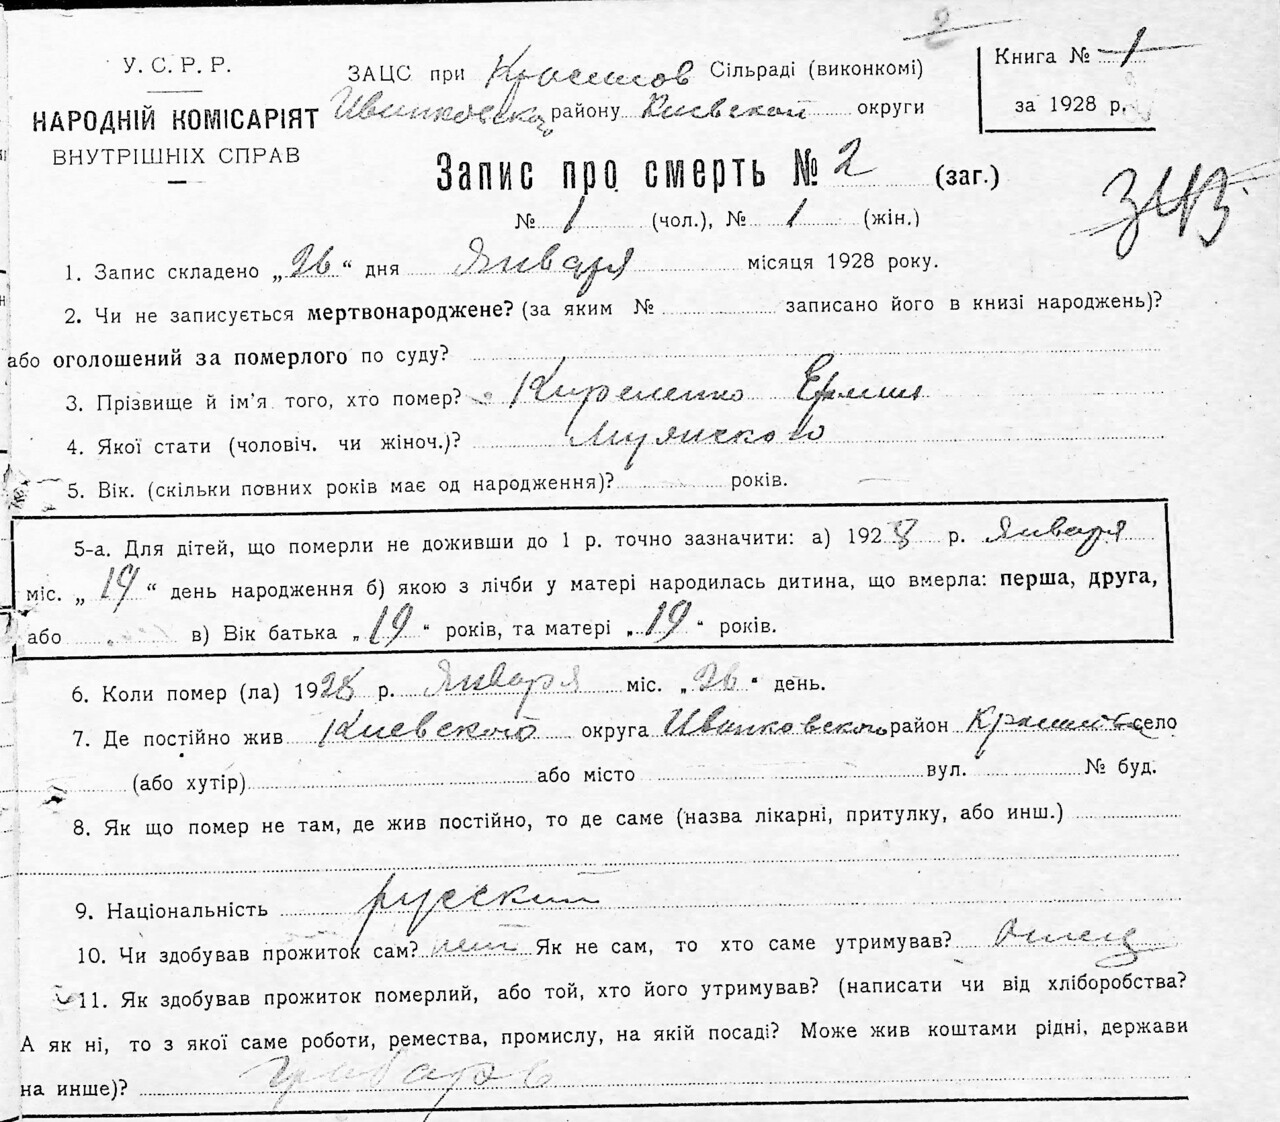 2
У. С. Р. Р.
НАРОДНІЙ КОМІСАРІЯТ
ВНУТРІШНІХ СПРАВ
ЗАЦС при Красилов Сільраді (виконкомі)
Иванковского району Киевской округи
Книга № 1
за 1928 р.
Запис про смерть № 2 (заг.)
№ 1 (чол.), № 1 (жін.)
343
1. Запис складено „26“ дня Января місяця 1928 року.
2. Чи не записується мертвонароджене? (за яким № записано його в книзі народжень)?
або оголошений за померлого по суду?
3. Прізвище й ім'я того, хто помер? Киреленко
4. Якої статі (чоловіч. чи жіноч.)? Мужского
5. Вік. (скільки повних років має од народження)? років.
5-а. Для дітей, що померли не доживши до 1 р. точно зазначити: а) 1928 р. Января
міс. „19“ день народження б) якою з лічби у матері народилась дитина, що вмерла: перша, друга,
або в) Вік батька „19“ років, та матері „19“ років.
6. Коли помер (ла) 1928 р. Января міс. „26“ день.
7. Де постійно жив Киевского округа Иванковского район село
(або хутір) або місто вул. № буд.
8. Як що помер не там, де жив постійно, то де саме (назва лікарні, притулку, або инш.)
9. Національність русский
10. Чи здобував прожиток сам? нет Як не сам, то хто саме утримував? Отец
11. Як здобував прожиток померлий, або той, хто його утримував? (написати чи від хліборобства?
А як ні, то з якої саме роботи, ремества, промислу, на якій посаді? Може жив коштами рідні, держави
на инше)?